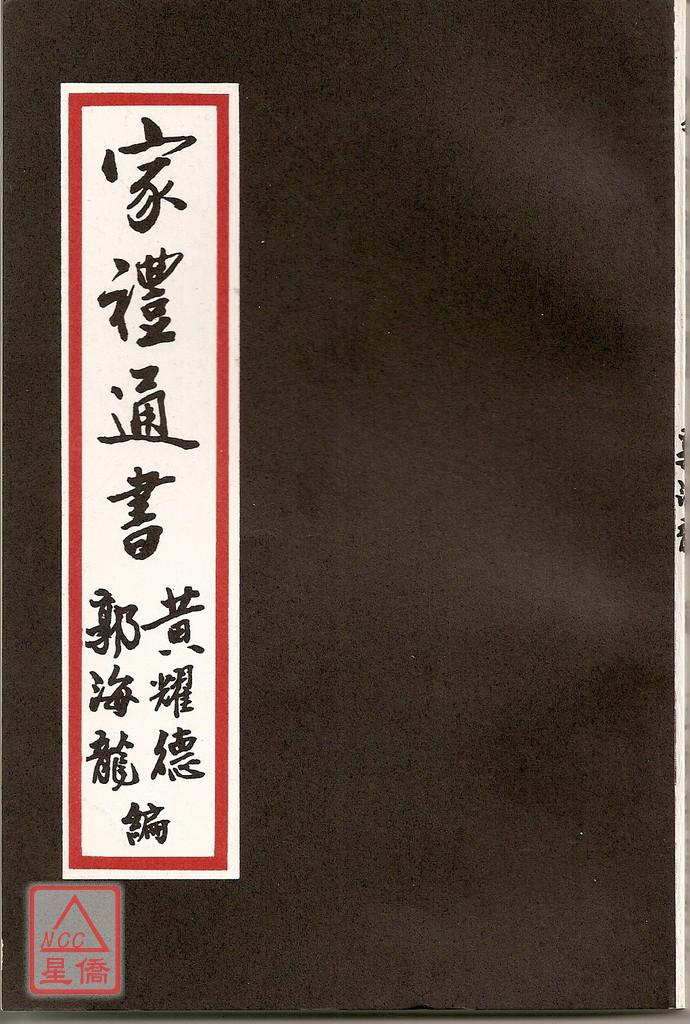 家禮通書
黃耀德
郭海龍
編
NCC
星僑